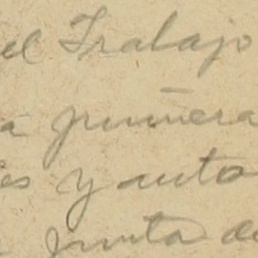 el Trabajo
a primera
es y auto
Junta de